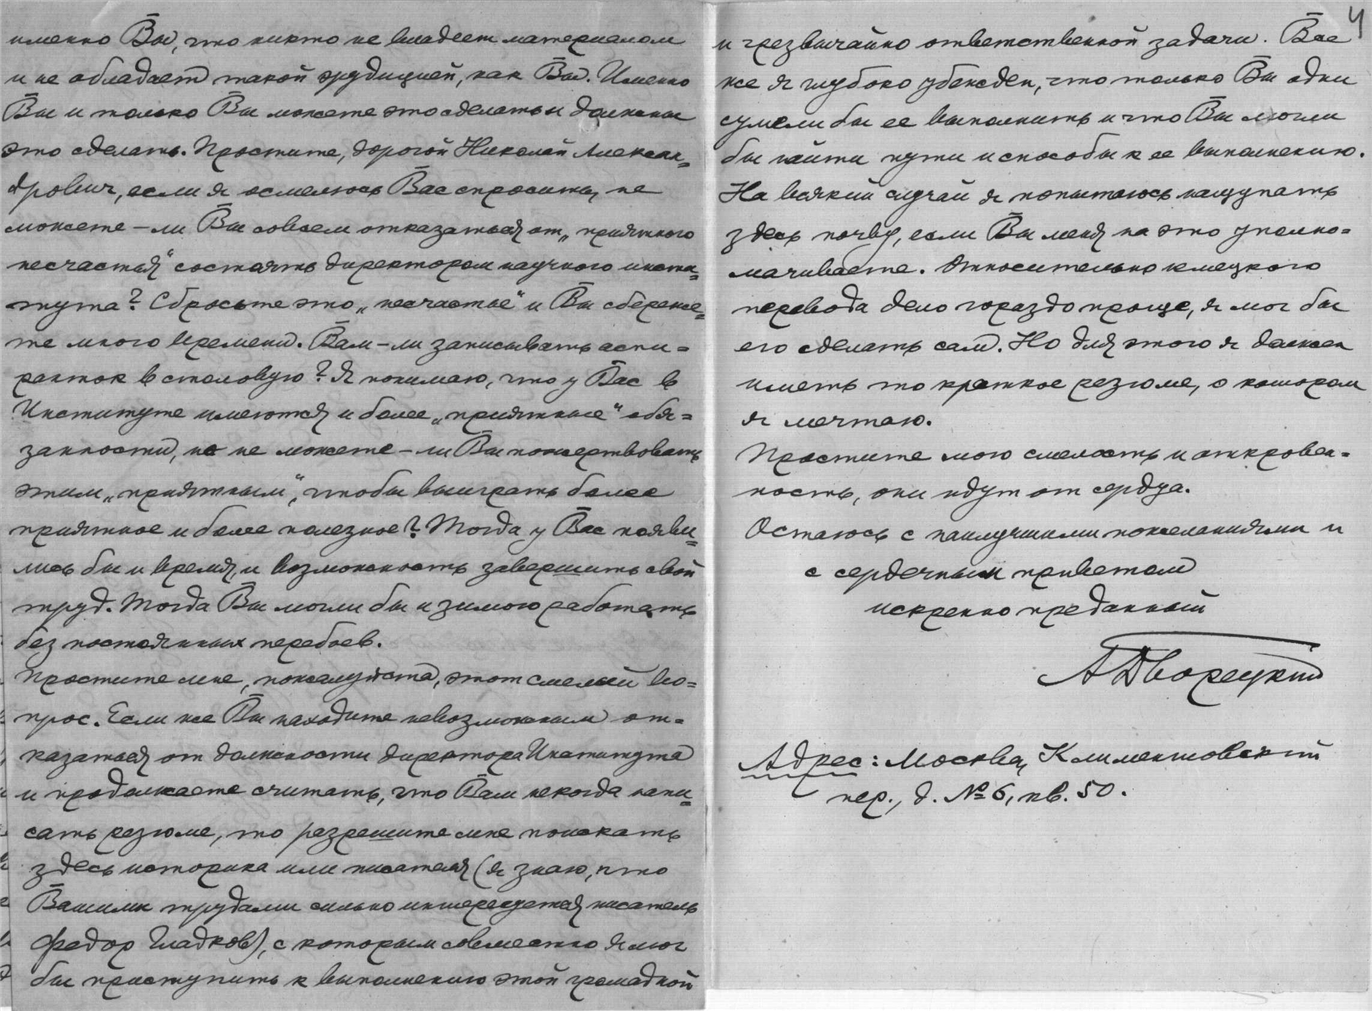 именно Вы, что никто не владеет материалом
и не обладает такой эрудицией, как Вы. Именно
Вы и только Вы можете это сделать и должны
это сделать. Простите, дорогой Николай Алексан=
дрович, если я осмелюсь Вас спросить, не
можете-ли Вы совсем отказаться от „приятного
несчастья" состоять директором научного инсти=
тута? Сбросьте это „несчастье" и Вы сбереже=
те много времени. Вам-ли записывать аспи=
ранток в столовую? Я понимаю, что у Вас в
Институте имеются и более „приятные" обя=
занности, но не можете-ли Вы пожертвовать
этим „приятным", чтобы выиграть более
приятное и более полезное? Тогда у Вас появи=
лись бы и время, и возможность завершить свой
труд. Тогда Вы могли бы и зимою работать
без постоянных перебоев.
Простите мне, пожалуйста, этот смелый во=
прос. Если же Вы находите невозможным от=
казаться от должности директора Института
и продолжаете считать, что Вам некогда напи=
сать резюме, то разрешите мне поискать
здесь историка или писателя (я знаю, что
Вашими трудами сильно интересуется писатель
Федор Гладков), с которым совместно я мог
бы приступить к выполнению этой громадной
4
и чрезвычайно ответственной задачи. Все
же я глубоко убежден, что только Вы одни
сумели бы ее выполнить и что Вы могли
бы найти пути и способы к ее выполнению.
На всякий случай я попытаюсь нащупать
здесь почву, если Вы меня на это уполно=
мачиваете. Относительно немецкого
перевода дело гораздо проще, я мог бы
его сделать сам. Но для этого я должен
иметь то краткое резюме, о котором
я мечтаю.
Простите мою смелость и откровен=
ность, они идут от сердца.
Остаюсь с наилучшими пожеланиями и
с сердечным приветом
искренно преданный
АДворецкий
Адрес: Москва, Климентовский
пер., д. № 6, кв. 50.